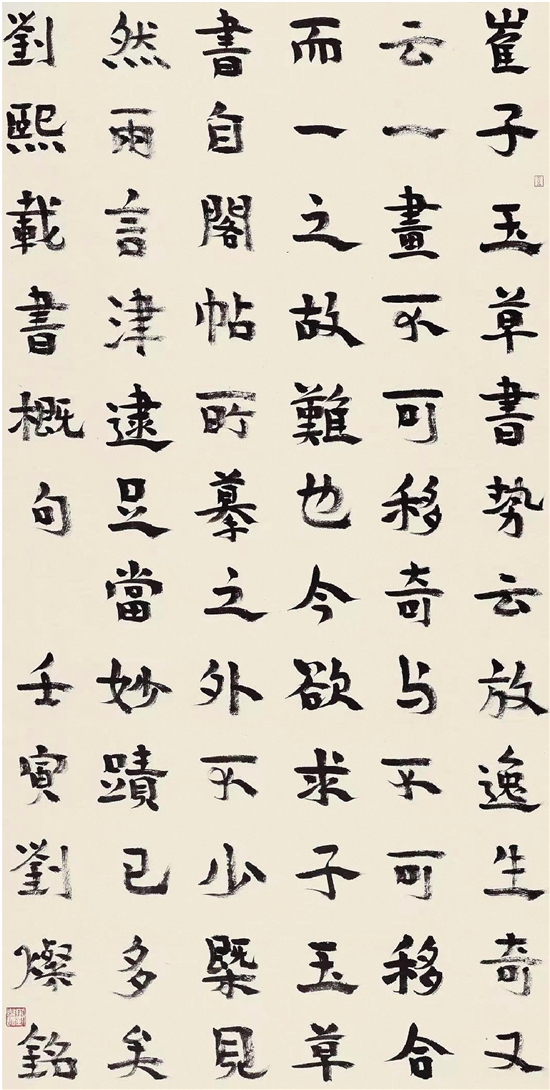 崔子玉草書勢云放逸生奇又
云一畫不可移奇与不可移合
而一之故難也今欲求子玉草
書自閣帖所摹之外不少槩見
然兩言津逮足當妙蹟已多矣
劉熙載書概句 壬寅劉燦銘